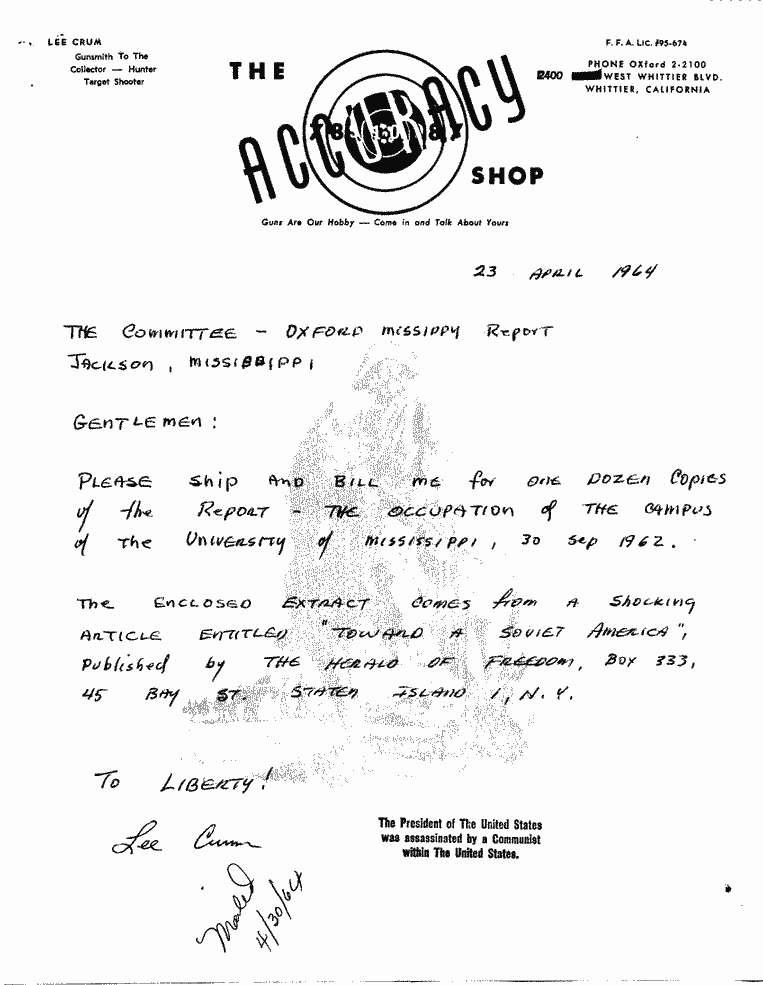 LEE CRUM
Gunsmith To The
Collector — Hunter
Target Shooter
THE
ACCURACY
SHOP
F. F. A. LIC. #95-674
PHONE OXford 2-2100
12400 WEST WHITTIER BLVD.
WHITTIER, CALIFORNIA
Guns Are Our Hobby — Come in and Talk About Yours
23 APRIL 1964
THE COMMITTEE - OXFORD MISSIPPY REPORT
JACKSON, MISSISSIPPI
GENTLEMEN:
PLEASE Ship AND BILL me for ONE DOZEN COPIES
of the REPORT - THE OCCUPATION of THE CAMPUS
of the UNIVERSITY of MISSISSIPPI, 30 Sep 1962.
The ENCLOSED EXTRACT COMES from A SHOCKING
ARTICLE ENTITLED "TOWARD A SOVIET AMERICA",
Published by THE HERALD OF FREEDOM, BOX 333,
45 BAY ST. STATEN ISLAND 1, N.Y.
TO LIBERTY!
Lee Crum
The President of The United States
was assassinated by a Communist
within The United States.
Mailed
4/30/64